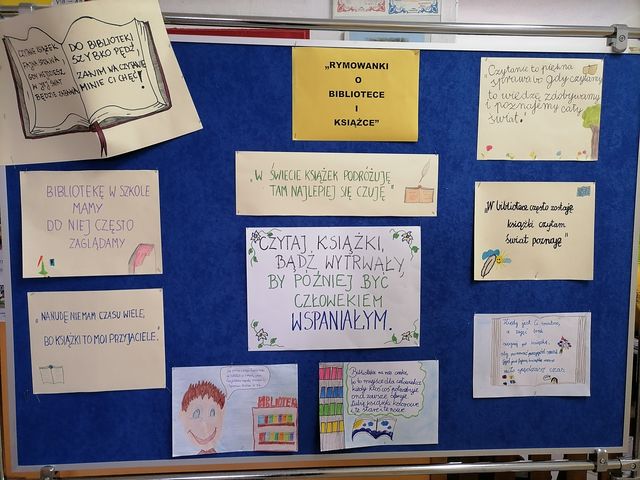 CZYTANIE KSIĄŻEK
FAJNA SPRAWA,
GDY WEJDZIESZ
W JEJ ŚWIAT
BĘDZIE ZABAWA
DO BIBLIOTEKI
SZYBKO PĘDŹ,
ZANIM NA CZYTANIE
MINIE CI CHĘĆ!
„RYMOWANKI
O
BIBLIOTECE
I
KSIĄŻCE”
"Czytanie to piękna
sprawa bo gdy czytamy
to wiedzę zdobywamy
i poznajemy cały
świat."
BIBLIOTEKĘ W SZKOLE
MAMY
DO NIEJ CZĘSTO
ZAGLĄDAMY
„W ŚWIECIE KSIĄŻEK PODRÓŻUJĘ,
TAM NAJLEPIEJ SIĘ CZUJĘ”
"W bibliotece często zostaję
książki czytam
świat poznaję"
CZYTAJ KSIĄŻKI,
BĄDŹ WYTRWAŁY,
BY PÓŹNIEJ BYĆ
CZŁOWIEKIEM
WSPANIAŁYM.
„NA NUDĘ NIE MAM CZASU WIELE,
BO KSIĄŻKI TO MOI PRZYJACIELE.”
Kiedy jest Ci smutno,
BIBLIOTEKA
Biblioteka na nas czeka,
bo to miejsce dla człowieka